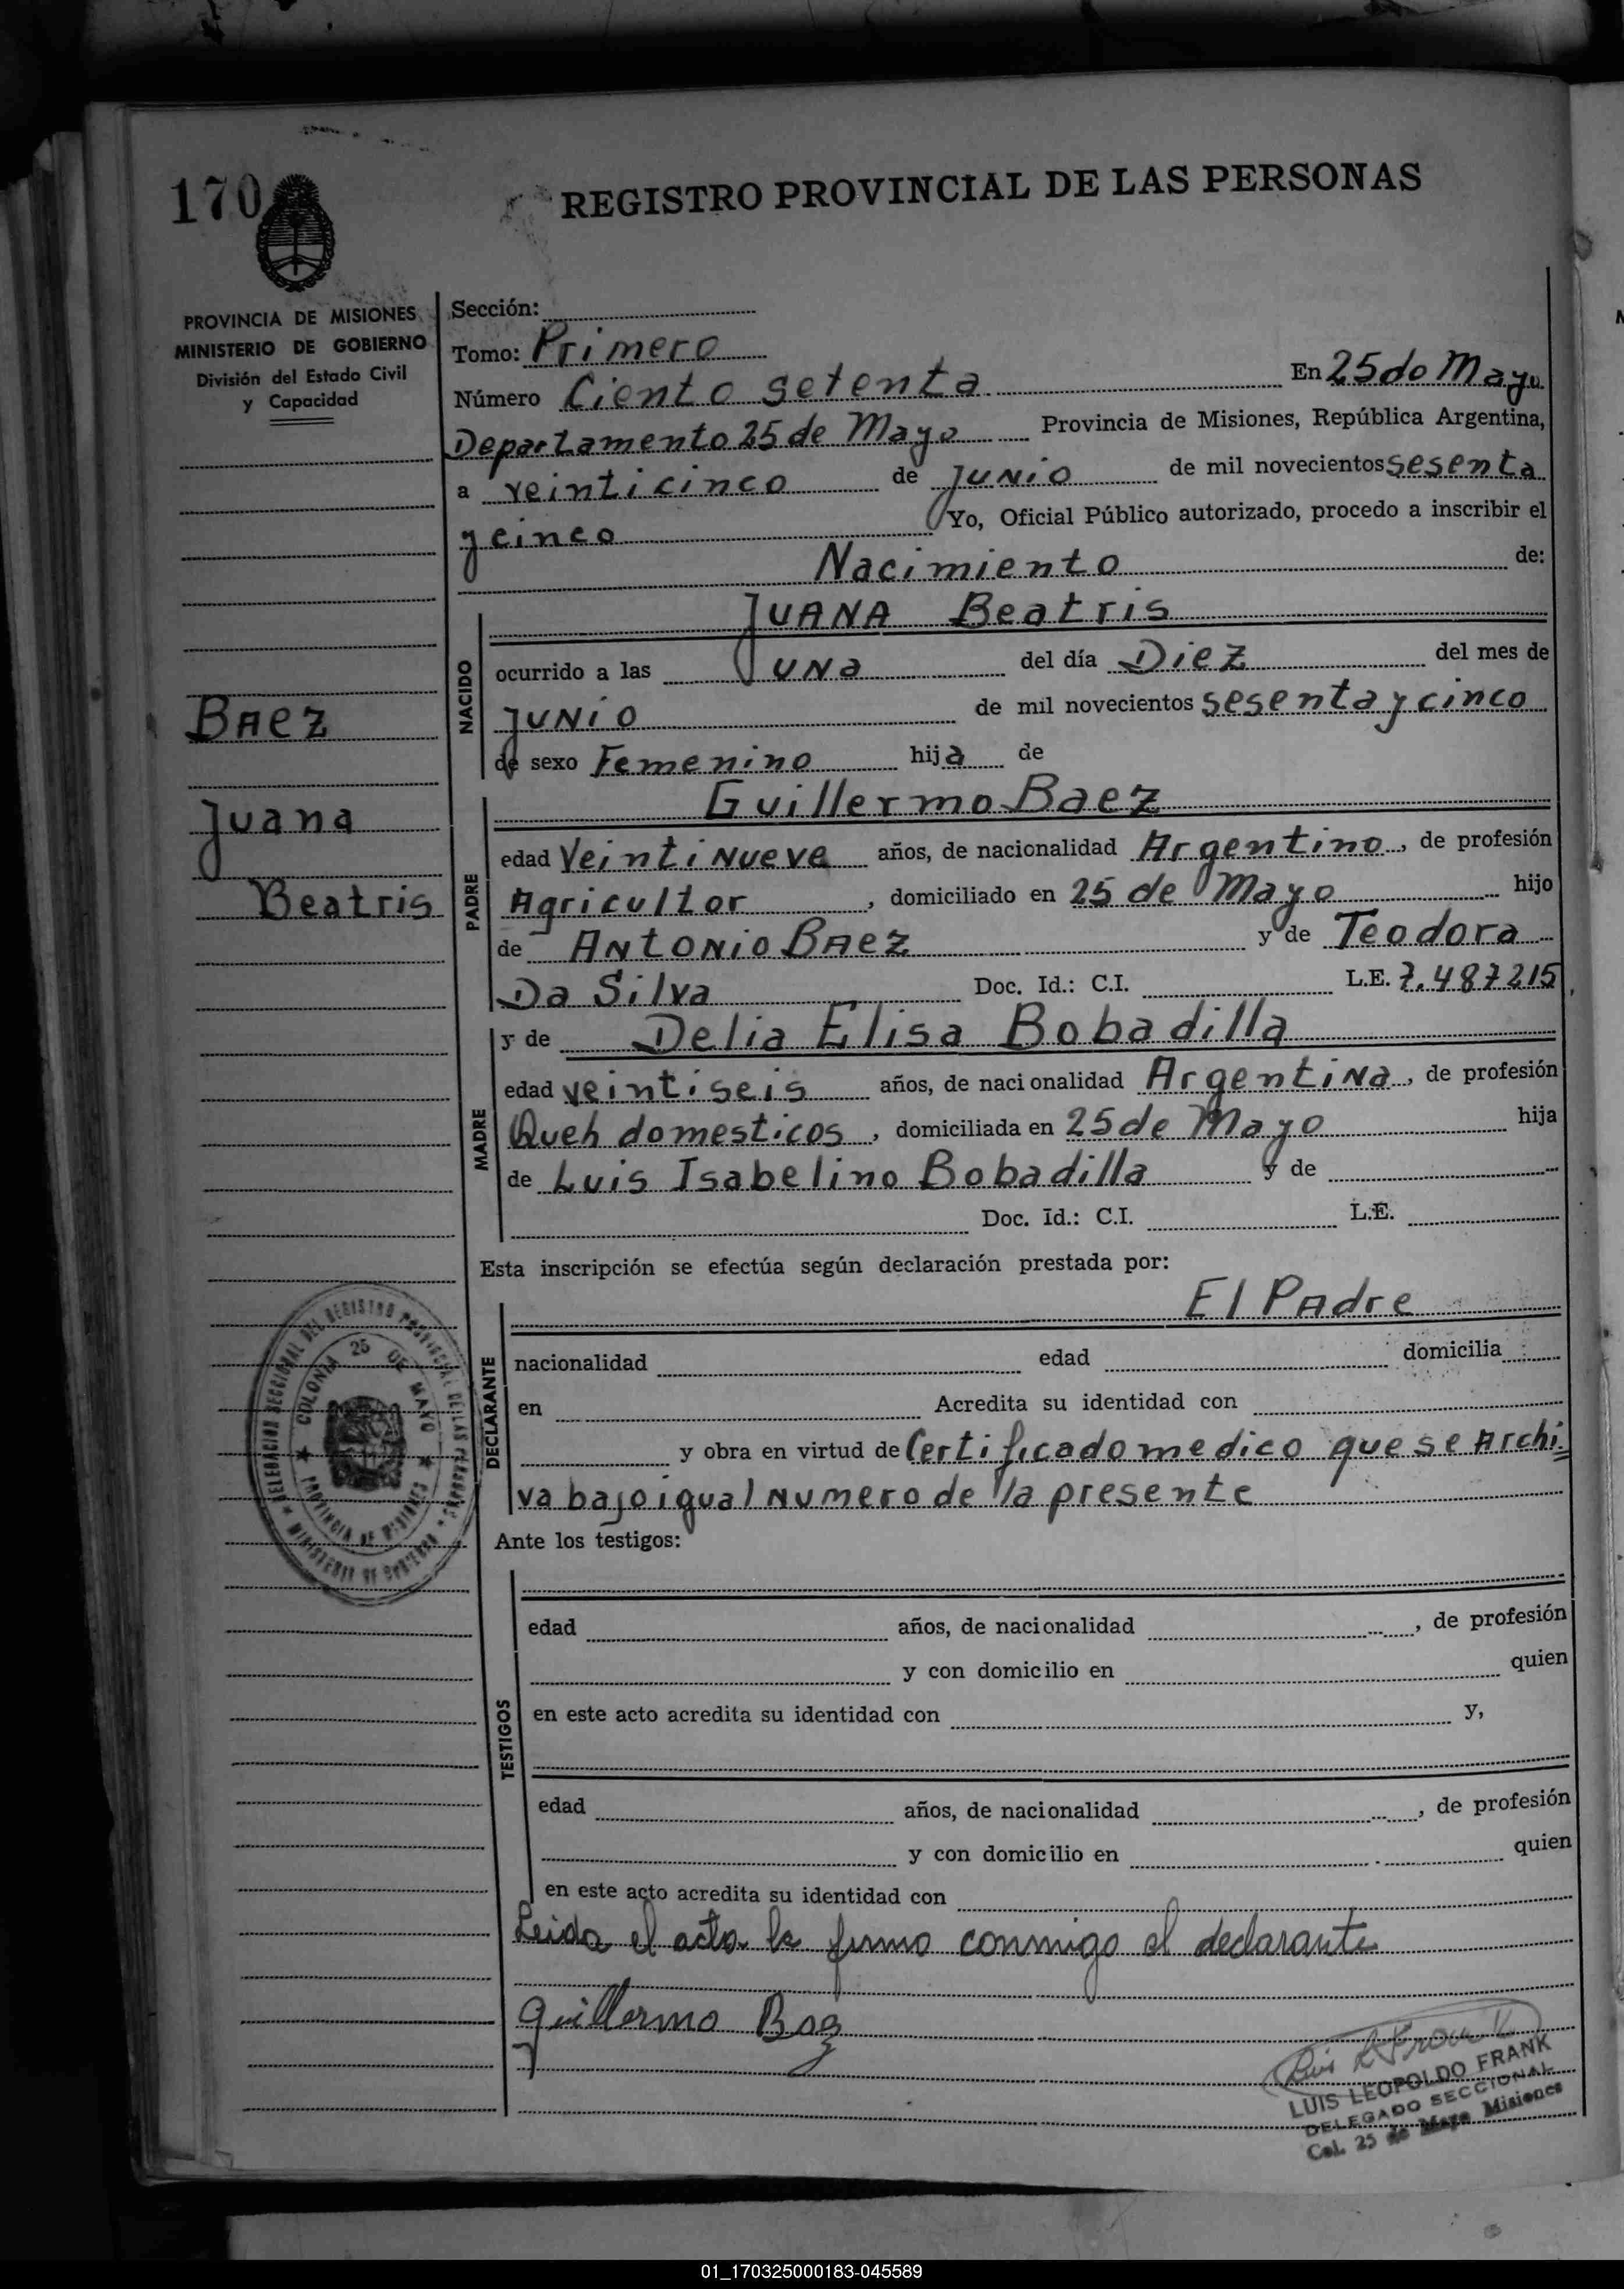 170
REGISTRO PROVINCIAL DE LAS PERSONAS
PROVINCIA DE MISIONES
MINISTERIO DE GOBIERNO
División del Estado Civil
y Capacidad
Baez
Juana
Beatris
Sección:
Tomo: Primero
Número Ciento setenta En 25 de Mayo
Departamento 25 de Mayo Provincia de Misiones, República Argentina,
a veinticinco de junio de mil novecientos sesenta
y cinco Yo, Oficial Público autorizado, procedo a inscribir el
Nacimiento de:
NACIDO
JUANA Beatris
ocurrido a las una del día Diez del mes de
junio de mil novecientos sesenta y cinco
de sexo Femenino hija de
PADRE
Guillermo Baez
edad Veintinueve años, de nacionalidad Argentino, de profesión
Agricultor, domiciliado en 25 de Mayo hijo
de Antonio Baez y de Teodora
Da Silva Doc. Id.: C.I. L.E. 7.487215,
y de Delia Elisa Bobadilla
MADRE
edad veintiseis años, de nacionalidad Argentina, de profesión
Queh domesticos, domiciliada en 25 de Mayo hija
de Luis Isabelino Bobadilla y de
Doc. Id.: C.I. L.E.
Esta inscripción se efectúa según declaración prestada por:
El Padre
DECLARANTE
nacionalidad edad domicilia
en Acredita su identidad con
y obra en virtud de Certificado medico que se Archi=
va bajo igual numero de la presente
Ante los testigos:
TESTIGOS
edad años, de nacionalidad , de profesión
y con domicilio en quien
en este acto acredita su identidad con y,
edad años, de nacionalidad , de profesión
y con domicilio en quien
en este acto acredita su identidad con
Leida el acta la firmo conmigo el declarante
Guillermo Baez
DELEGACION SECCIONAL DEL REGISTRO PROVINCIAL DE LAS PERSONAS
MINISTERIO DE GOBIERNO
COLONIA 25 DE MAYO
PROVINCIA DE MISIONES
Luis L Frank
LUIS LEOPOLDO FRANK
DELEGADO SECCIONAL
Col. 25 de Mayo Misiones
01_170325000183-045589